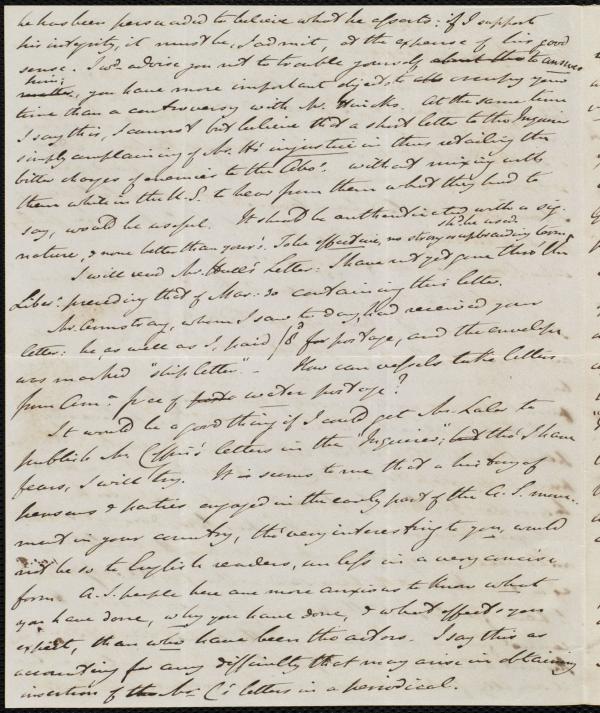 he has been persuaded to believe what he asserts: if I support
his integrity, it must be, I admit, at the expense of his good
sense. I wd. advise you not to trouble yourself about this to answer
him; you have more important objects to occupy your
time than a controversy with Mr. At the same time
I say this, I cannot but believe that a short letter to the Inquirer
simply complaining of Mr. H's injustice in thus retailing the
bitter charges of enemies to the Abos. without mixing with
them while in the U.S. to hear from them what they had to
say, would be useful. It should be authenticated with a sig-
nature, & none better than your's. To be effective, no strong or upbraiding terms
shd. be used.
I will read Mr. Letter: I have not yet gone thro' the
Libr. preceding that of Mar: 30 containing this letter.
Mr. Armstrong, whom I saw to day, had received your
letter: he as well as I, paid /8d for postage, and the envelope
was marked "ship letter". – How can vessels take letters
from Ama. free of water postage?
It would be a good thing if I could get Mr. Lalor to
publish Mr. Coffin's letters in the "Inquirer"; tho' I have
fears, I will try. It seems to me that a history of
persons & parties engaged in the early part of the A.S. move-
ment in your country, tho' very interesting to you, would
not be so to English readers, unless in a very concise
form. A.S. people here are more anxious to know what
you have done, why you have done, & what effects you
expect, than who have been the actors. I say this as
accounting for any difficulty that may arise in obtaining
insertion of the Mr. C's letters in a periodical.